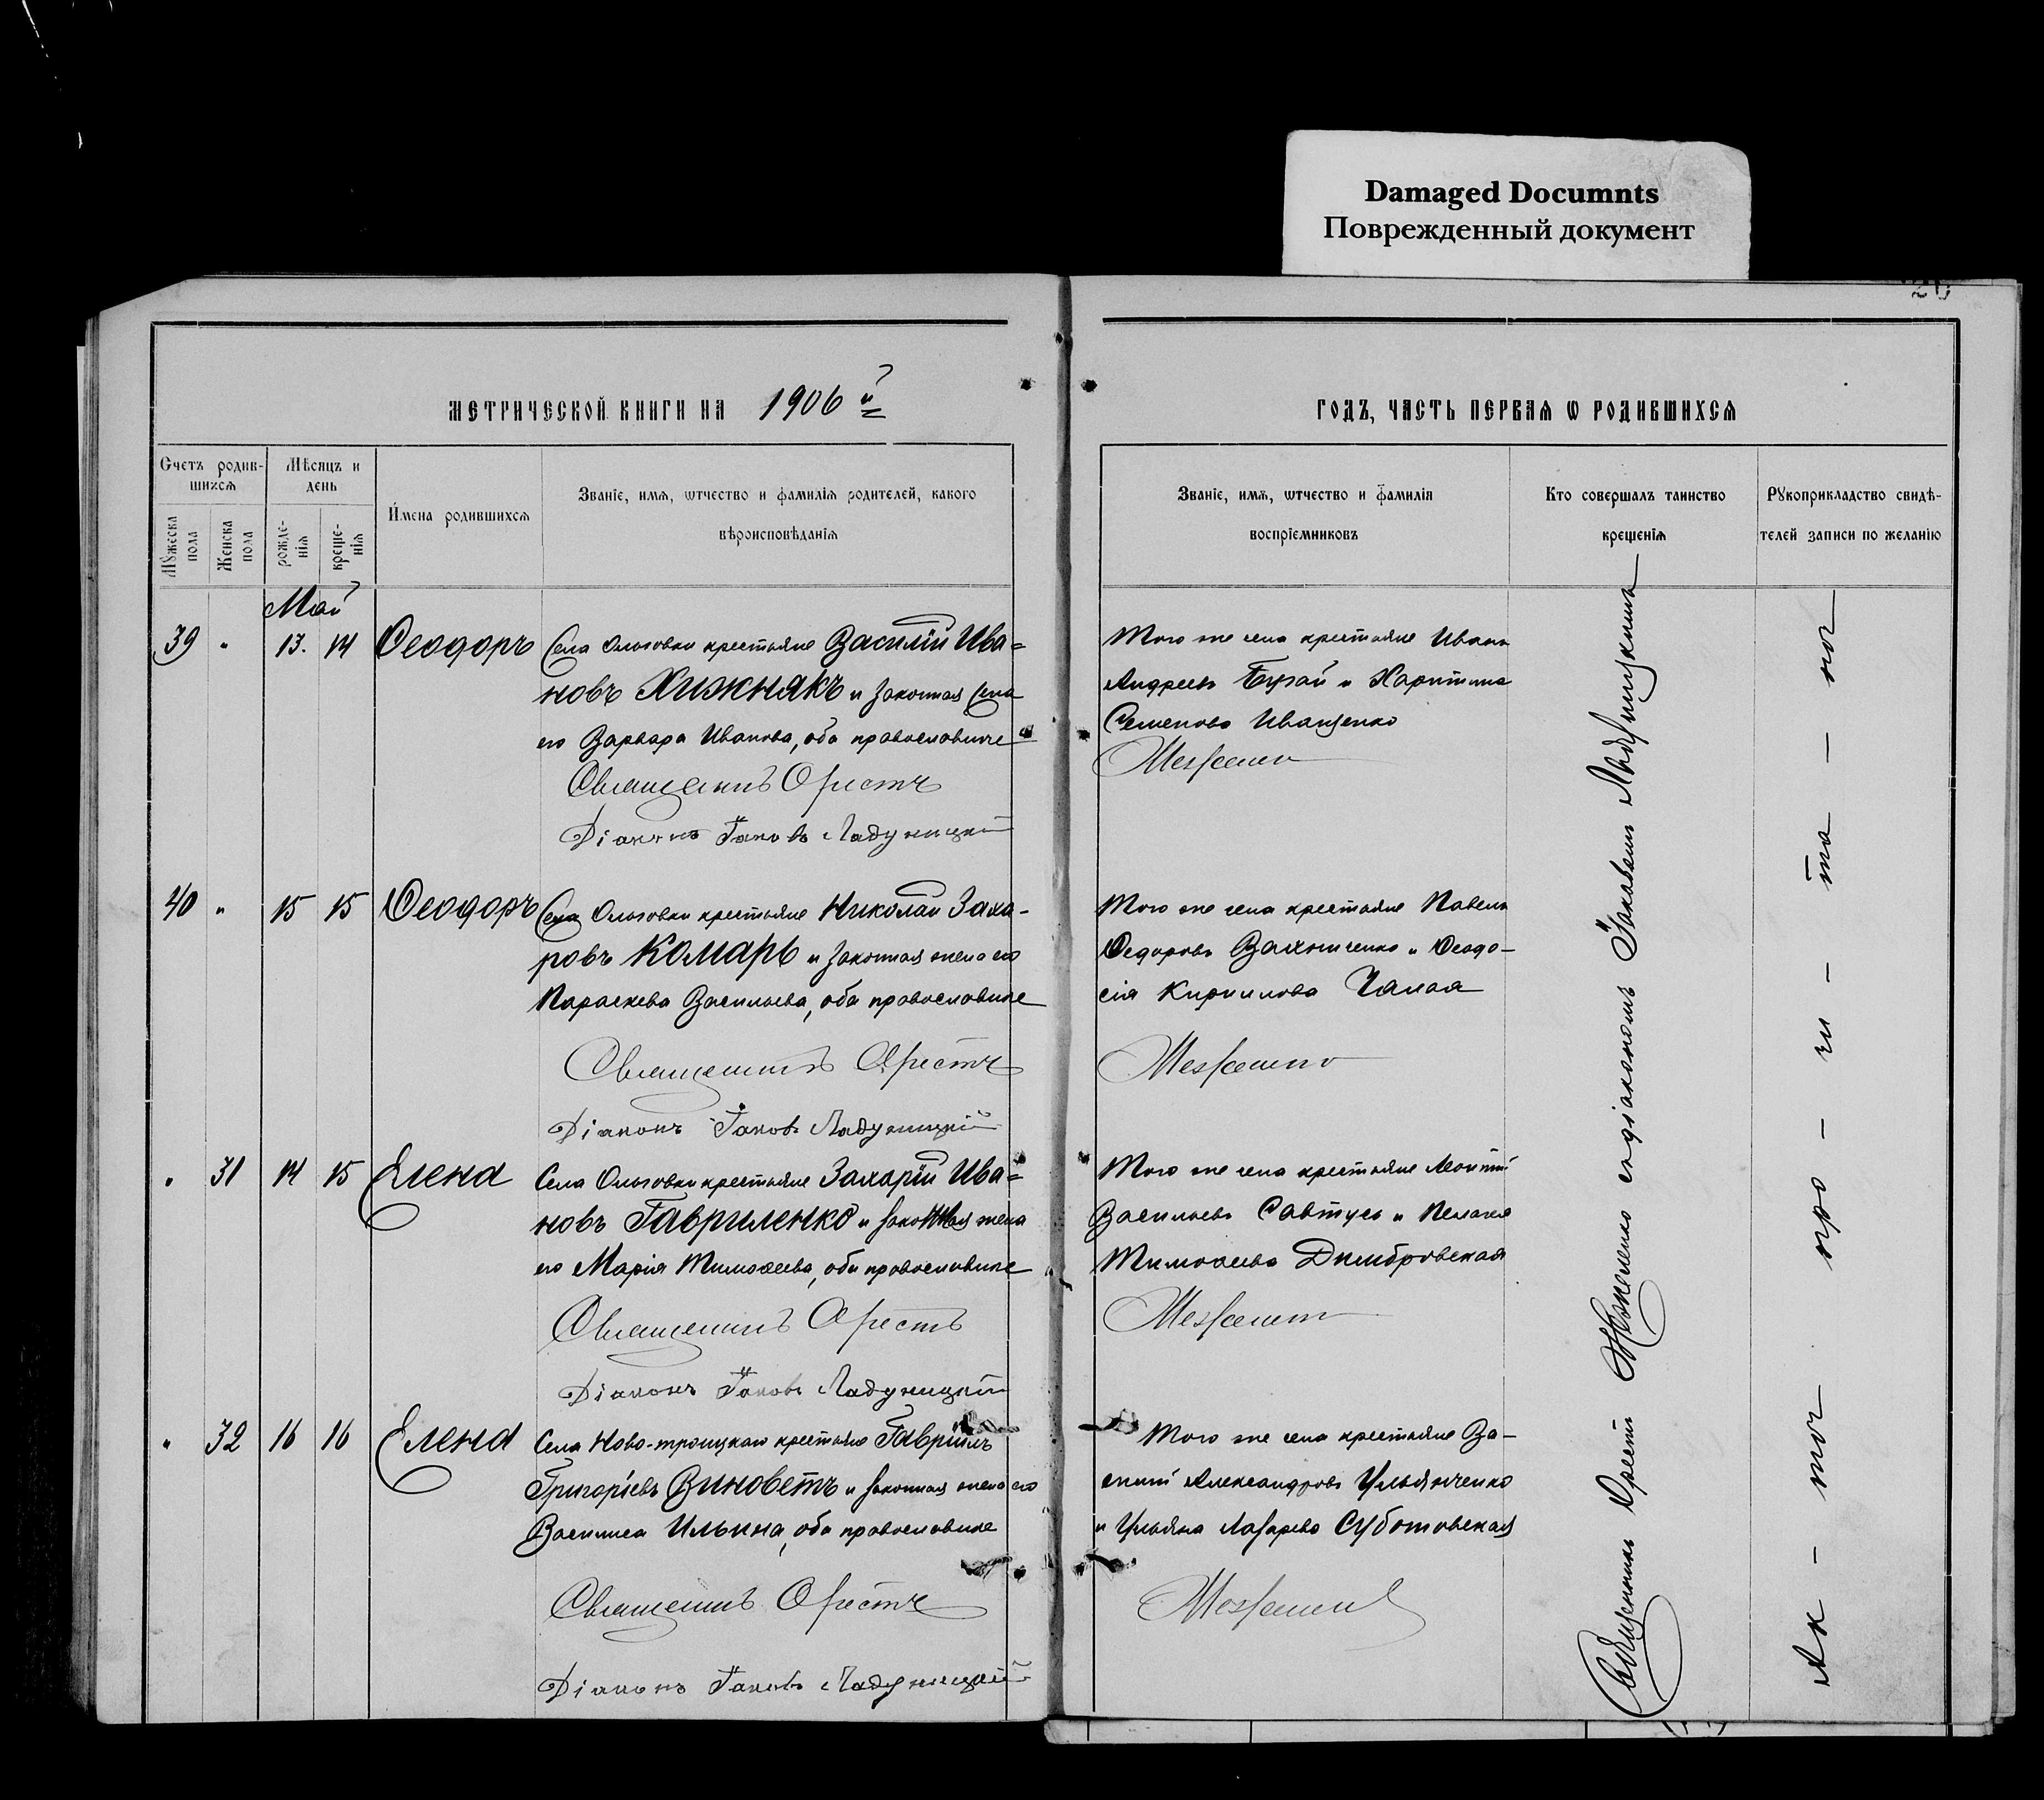 Damaged Documnts
Поврежденный документ
МЕТРИЧЕСКОЙ КНИГИ НА 1906й
ГОДЪ, ЧАСТЬ ПЕРВАЯ Ѡ РОДИВШИХСЯ
Счетъ родив-
шихся
Мѣсяцъ и
день
Мужеска
пола
Женска
пола
рожде-
нія
креще-
нія
Имена родившихся
Званіе, имя, ѡтчество и фамилія родителей, какого
вѣроисповѣданія
Званіе, имя, ѡтчество и фамилія
воспріемниковъ
Кто совершалъ таинство
крещенія
Рукоприкладство свидѣ-
телей записи по желанію
Май
39 " 13. 14 Ѳеодоръ
Села Ольговки крестьяне Василій Ива=
новъ Хижнякъ и законная жена
его Варвара Иванова, оба православные
Священникъ Орестъ
Діаконъ Іаковъ Ладуницкій
Того же села крестьяне Иванъ
Андреевъ Бугай и Харитина
Семенова Иващенко
40 " 15 15 Ѳеодоръ
Села Ольговки крестьяне Николай Заха-
ровъ Комаръ и законная жена его
Параскева Васильева, оба православные
Священникъ Орестъ
Діаконъ Іаковъ Ладуницкій
Того же села крестьяне Павелъ
Ѳедоровъ Вахниченко и Ѳеодо-
сія Кириллова Чалая
" 31 14 15 Елена
Села Ольговки крестьяне Захарій Ива=
новъ Гавриленко и законная жена
его Марія Тимоѳеева, оба православные
Священникъ Орестъ
Діаконъ Іаковъ Ладуницкій
Того же села крестьяне Леонтій
Васильевъ Савтусь и Пелагея
Тимоѳеева Димбровская
" 32 16 16 Елена
Села Ново-троицкаго крестьяне Гавріилъ
Григорьевъ Виноветъ и законная жена его
Василиса Ильина, оба православные
Священникъ Орестъ
Діаконъ Іаковъ Ладуницкій
Того же села крестьяне Ва-
силій Александровъ Ульянченко
и Ульяна Лазарева Суботовская
Священникъ Орестъ
содіакономъ Іаковомъ Ладуницкимъ